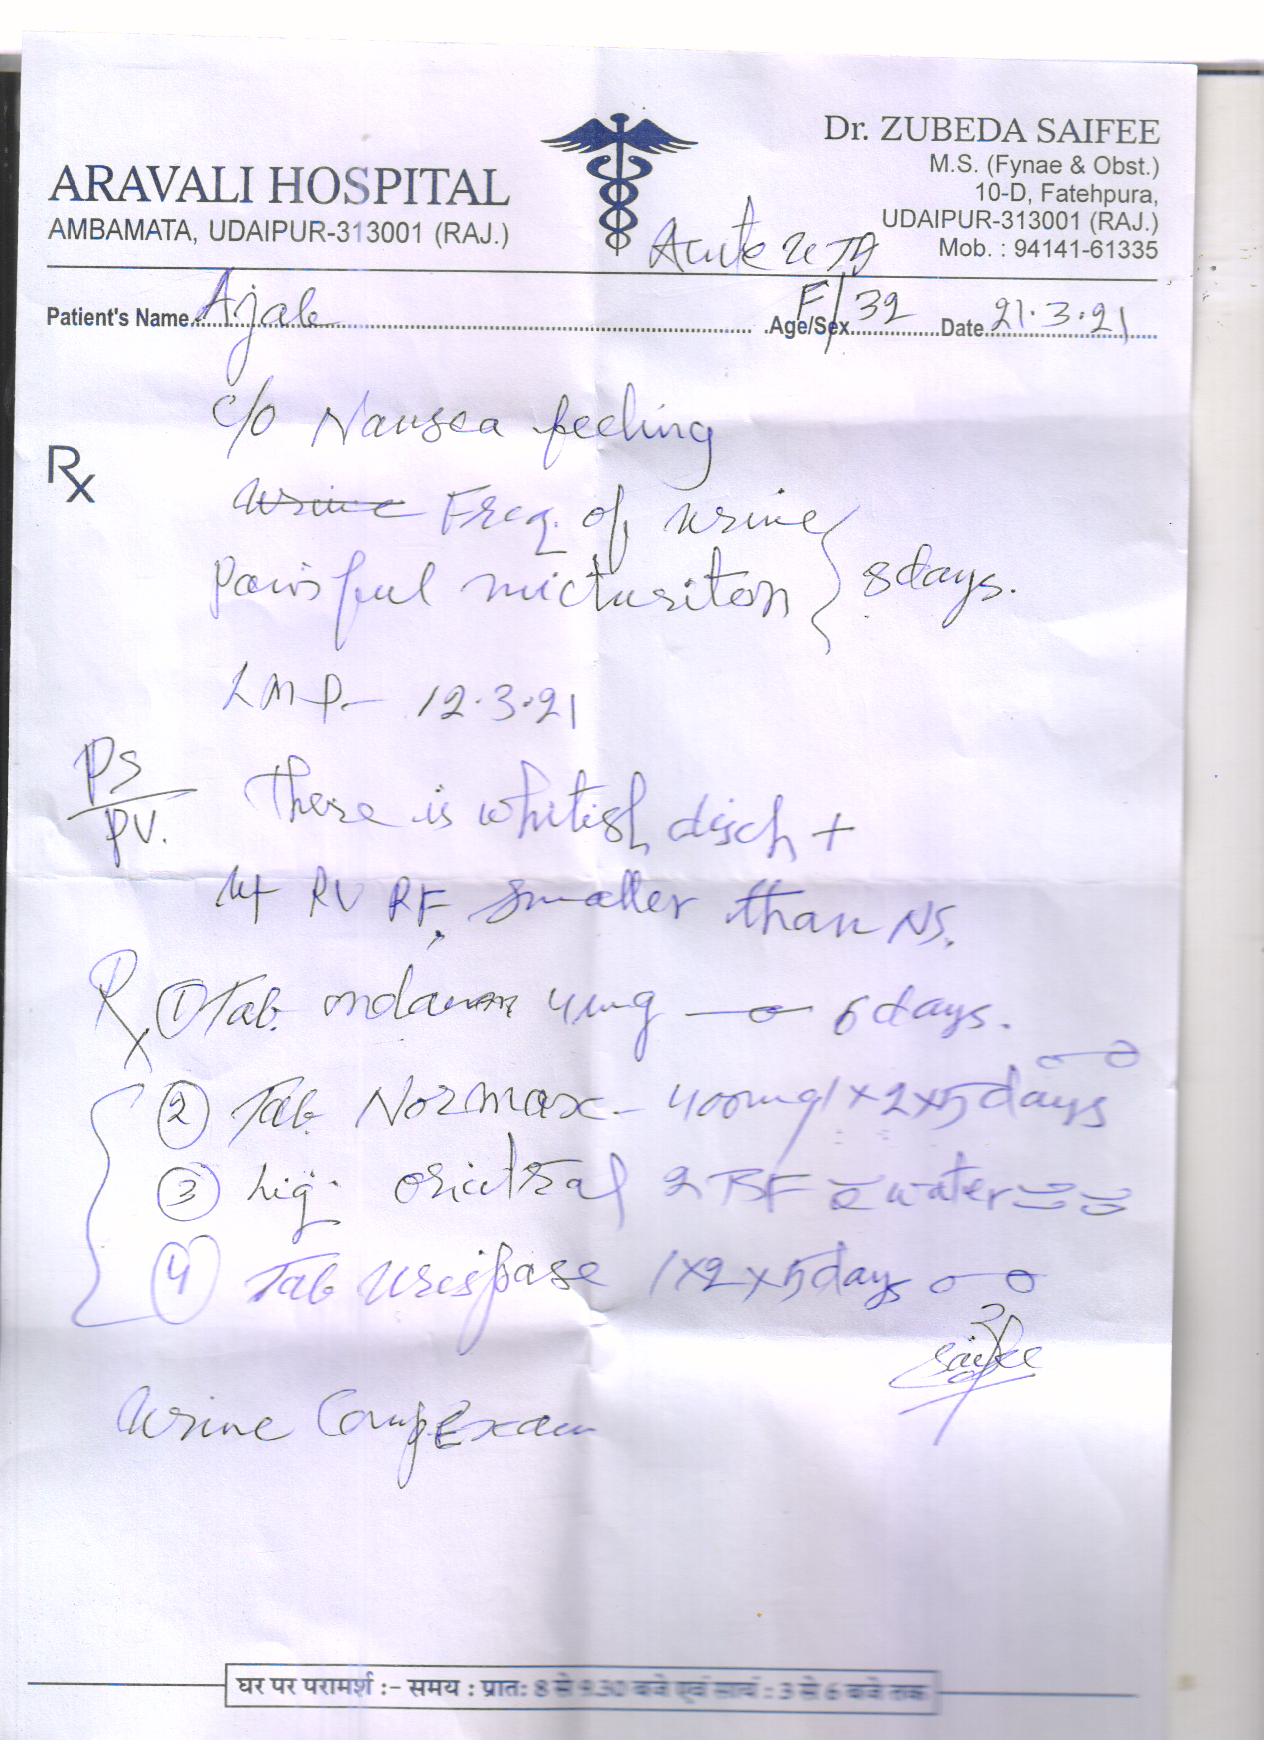 ARAVALI HOSPITAL
AMBAMATA, UDAIPUR-313001 (RAJ.)
Dr. ZUBEDA SAIFEE
M.S. (Fynae & Obst.)
10-D, Fatehpura,
UDAIPUR-313001 (RAJ.)
Mob. : 94141-61335
Acute
Patient's Name Ajab Age/Sex F/32 Date 21.3.21
c/o Nausea feeling
Rx
Urine Freq. of urine
Painsful micturiton } 8days.
LMP- 12.3.21
PS/PV. There is whitish disch +
RV RF, smaller than NS.
Rx ① Tab. 4mg 6 days.
② Tab Normax - 400mg 1x2x5days
③ liq. 2 TSF c water
④ Tab Urispase 1x2x5days
Saifee
Urine Comp Exam
घर पर परामर्श :- समय : प्रातः 8 से 9.30 बजे एवं सायं : 3 से 6 बजे तक